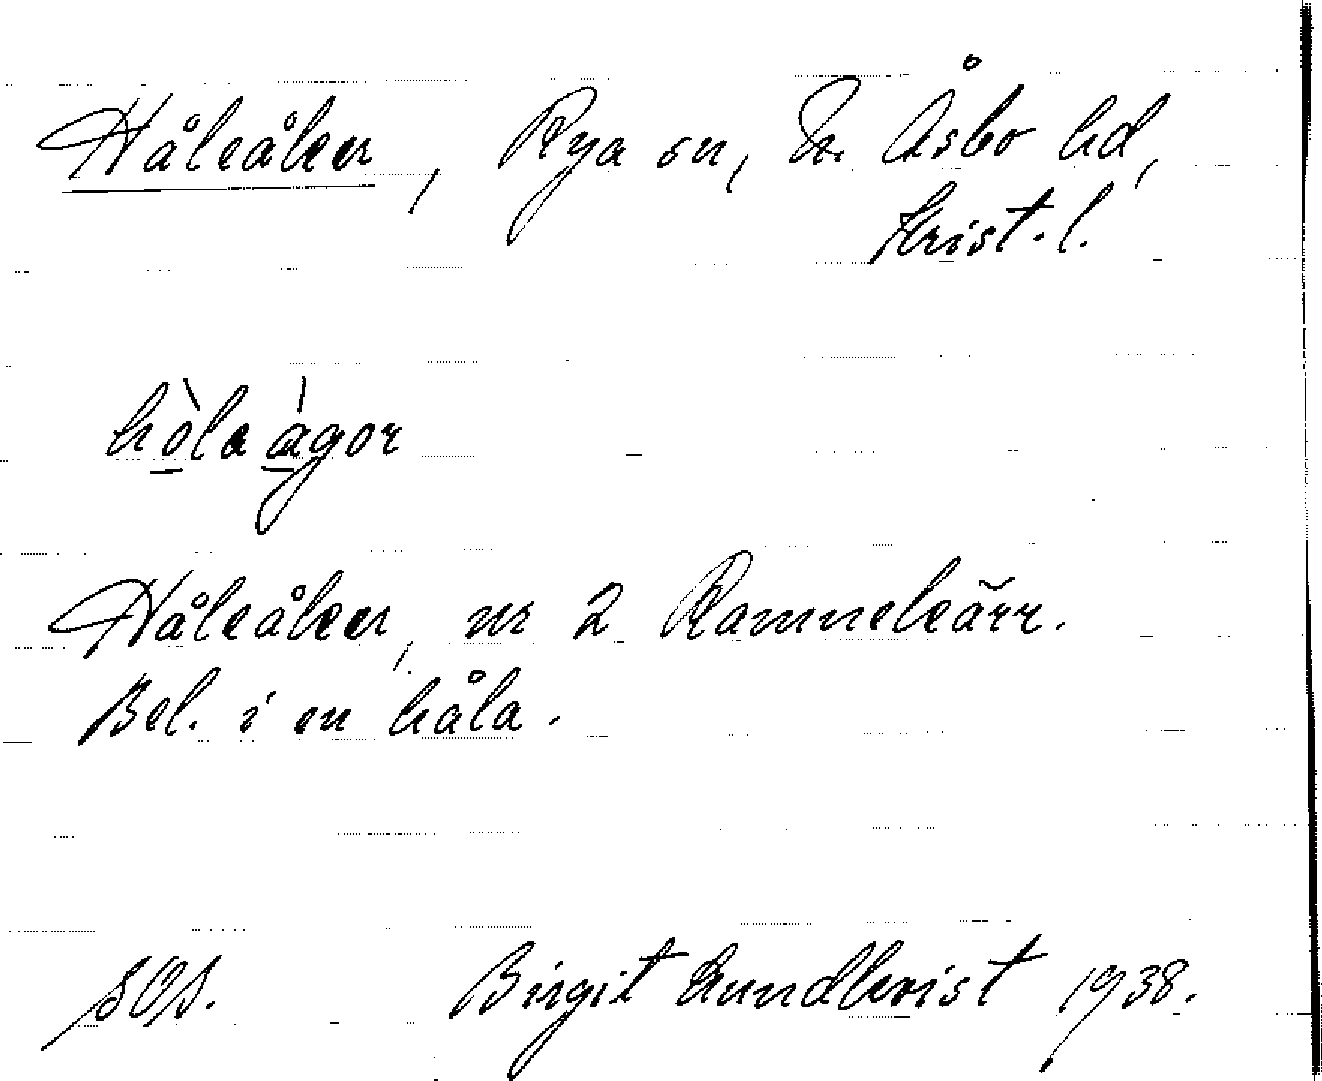 Håleåker, Rya sn, N. Åsbo hd,
Krist. l.
hòla àgor
Håleåker, nr 2 Ramnekärr.
Bel. i en håla.
SOS. Birgit Lundkvist 1938.